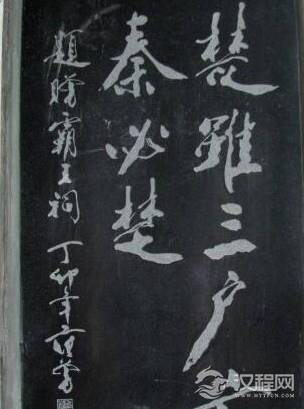 楚雖三户
秦必楚
題贈霸王祠 丁卯年
汉程网
WWW.HTTPCN.COM